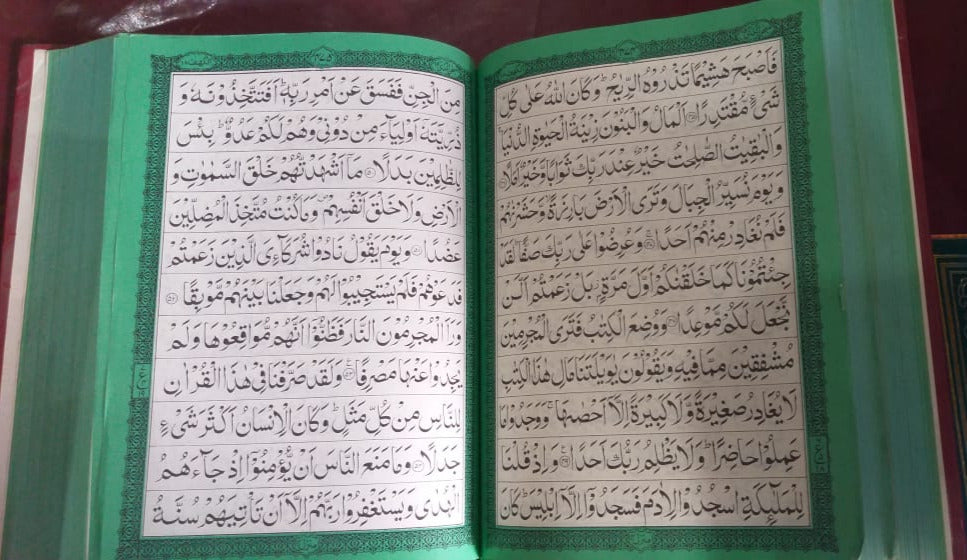 فَاَصۡبَحَ هَشِيۡمًا تَذۡرُوۡهُ الرِّيٰحُ‌ؕ وَكَانَ اللّٰهُ عَلٰى كُلِّ
شَىۡءٍ مُّقۡتَدِرًا‏ ﴿۴۵﴾ اَلۡمَالُ وَ الۡبَـنُوۡنَ زِيۡنَةُ الۡحَيٰوةِ الدُّنۡيَا‌ۚ
وَالۡبٰقِيٰتُ الصّٰلِحٰتُ خَيۡرٌ عِنۡدَ رَبِّكَ ثَوَابًا وَّخَيۡرٌ اَمَلًا‏ ﴿۴۶﴾
وَيَوۡمَ نُسَيِّرُ الۡجِبَالَ وَ تَرَى الۡاَرۡضَ بَارِزَةً ۙ وَّحَشَرۡنٰهُمۡ
فَلَمۡ نُغَادِرۡ مِنۡهُمۡ اَحَدًا‌ۚ‏ ﴿۴۷﴾ وَعُرِضُوۡا عَلٰى رَبِّكَ صَفًّاؕ لَقَدۡ
جِئۡتُمُوۡنَا كَمَا خَلَقۡنٰكُمۡ اَوَّلَ مَرَّةٍۢ بَلۡ زَعَمۡتُمۡ اَلَّنۡ
نَّجۡعَلَ لَـكُمۡ مَّوۡعِدًا‏ ﴿۴۸﴾ وَوُضِعَ الۡكِتٰبُ فَتَرَى الۡمُجۡرِمِيۡنَ
مُشۡفِقِيۡنَ مِمَّا فِيۡهِ وَ يَقُوۡلُوۡنَ يٰوَيۡلَـتَـنَا مَالِ هٰذَا الۡـكِتٰبِ
لَا يُغَادِرُ صَغِيۡرَةً وَّلَا كَبِيۡرَةً اِلَّاۤ اَحۡصٰٮهَا‌ۚ وَوَجَدُوۡا مَا
عَمِلُوۡا حَاضِرًا‌ؕ وَ لَا يَظۡلِمُ رَبُّكَ اَحَدًا‏ ﴿۴۹﴾ وَاِذۡ قُلۡنَا
لِلۡمَلٰٓٮِٕكَةِ اسۡجُدُوۡا لِاٰدَمَ فَسَجَدُوۡۤا اِلَّاۤ اِبۡلِيۡسَؕ كَانَ
مِنَ الۡجِنِّ فَفَسَقَ عَنۡ اَمۡرِ رَبِّهٖؕ اَفَتَـتَّخِذُوۡنَهٗ وَ
ذُرِّيَّتَهٗۤ اَوۡلِيَآءَ مِنۡ دُوۡنِىۡ وَهُمۡ لَـكُمۡ عَدُوٌّ ؕ بِئۡسَ
لِلظّٰلِمِيۡنَ بَدَلًا‏ ﴿۵۰﴾ مَاۤ اَشۡهَدْتُّهُمۡ خَلۡقَ السَّمٰوٰتِ وَ
الۡاَرۡضِ وَلَا خَلۡقَ اَنۡفُسِهِمۡ وَمَا كُنۡتُ مُتَّخِذَ الۡمُضِلِّيۡنَ
عَضُدًا‏ ﴿۵۱﴾ وَيَوۡمَ يَقُوۡلُ نَادُوۡا شُرَكَآءِىَ الَّذِيۡنَ زَعَمۡتُمۡ
فَدَعَوۡهُمۡ فَلَمۡ يَسۡتَجِيۡبُوۡا لَهُمۡ وَجَعَلۡنَا بَيۡنَهُمۡ مَّوۡبِقًا‏ ﴿۵۲﴾
وَرَاَ الۡمُجۡرِمُوۡنَ النَّارَ فَظَنُّوۡۤا اَنَّهُمۡ مُّوَاقِعُوۡهَا وَ لَمۡ
يَجِدُوۡا عَنۡهَا مَصۡرِفًا‏ ﴿۵۳﴾ وَلَقَدۡ صَرَّفۡنَا فِىۡ هٰذَا الۡقُرۡاٰنِ
لِلنَّاسِ مِنۡ كُلِّ مَثَلٍ‌ ؕ وَكَانَ الۡاِنۡسَانُ اَكۡثَرَ شَىۡءٍ
جَدَلًا‏ ﴿۵۴﴾ وَمَا مَنَعَ النَّاسَ اَنۡ يُّؤۡمِنُوۡۤا اِذۡ جَآءَهُمُ
الۡهُدٰى وَيَسۡتَغۡفِرُوۡا رَبَّهُمۡ اِلَّاۤ اَنۡ تَاۡتِيَهُمۡ سُنَّةُ